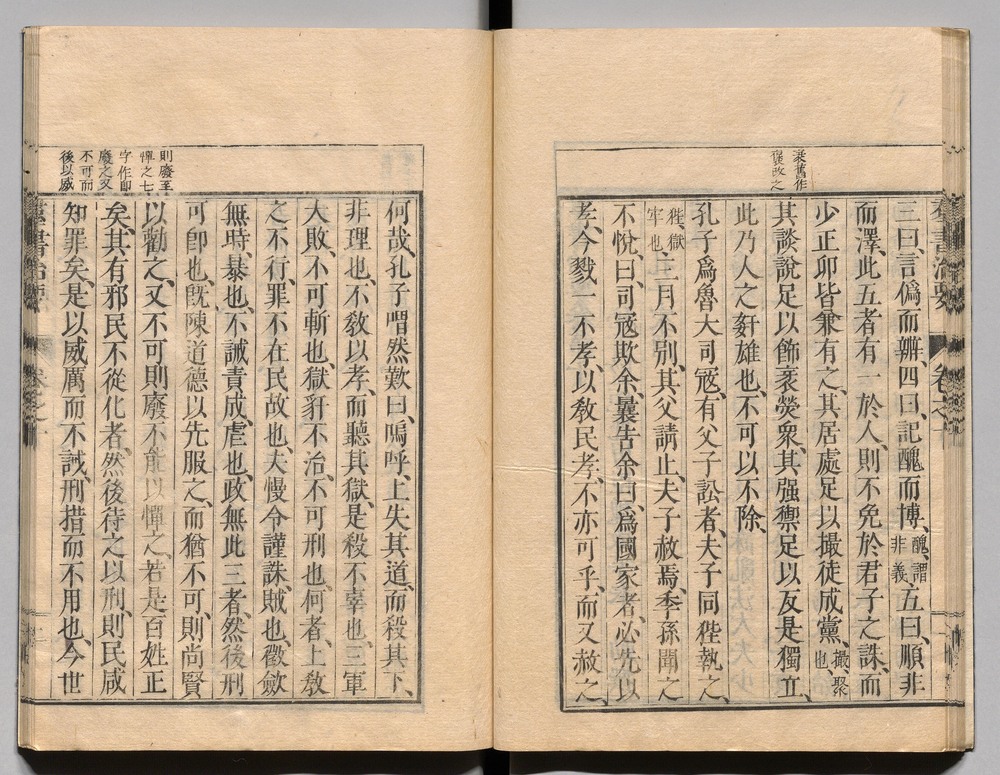 袠舊作
褒改之
三曰、言僞而辨、四曰、記醜而博、醜、謂
非義
五曰、順非
而澤、此五者有一於人、則不免於君子之誅、而
少正卯皆兼有之、其居處足以撮徒成黨、撮、聚
也
其談說足以飾袠熒衆、其强禦足以反是獨立、
此乃人之姧雄也、不可以不除、
孔子爲魯大司寇、有父子訟者、夫子同狴執之、
狴、獄
牢也
三月不別、其父請止、夫子赦焉、季孫聞之
不悅、曰、司寇欺余、曩告余曰、爲國家者、必先以
孝、今戮一不孝、以敎民孝、不亦可乎、而又赦之
則廢至
憚之七
字作卽
廢之又
不可而
後以威
何哉、孔子喟然歎曰、嗚呼、上失其道、而殺其下、
非理也、不敎以孝、而聽其獄、是殺不辜也、三軍
大敗、不可斬也、獄犴不治、不可刑也、何者、上敎
之不行、罪不在民故也、夫慢令謹誅、賊也、徵斂
無時、暴也、不誡責成、虐也、政無此三者、然後刑
可卽也、旣陳道德以先服之、而猶不可、則尚賢
以勸之、又不可則廢不能以憚之、若是百姓正
矣、其有邪民不從化者、然後待之以刑、則民咸
知罪矣、是以威厲而不誡、刑措而不用也、今世
羣書治要 卷之十